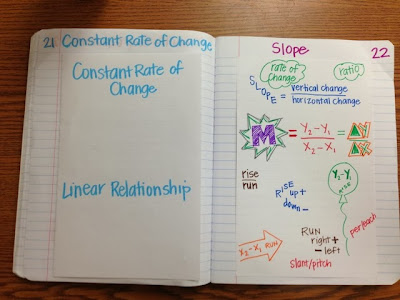 21 Constant Rate of Change
Constant Rate of
Change
Linear Relationship
Slope 22
rate of
change
ratio
SLOPE = vertical change
horizontal change
M = Y₂-Y₁ = ΔY
X₂-X₁ ΔX
rise
run
RISE
up+
down-
Y₂-Y₁
RISE
per/each
X₂-X₁ RUN
RUN
right+
-left
Slant/pitch